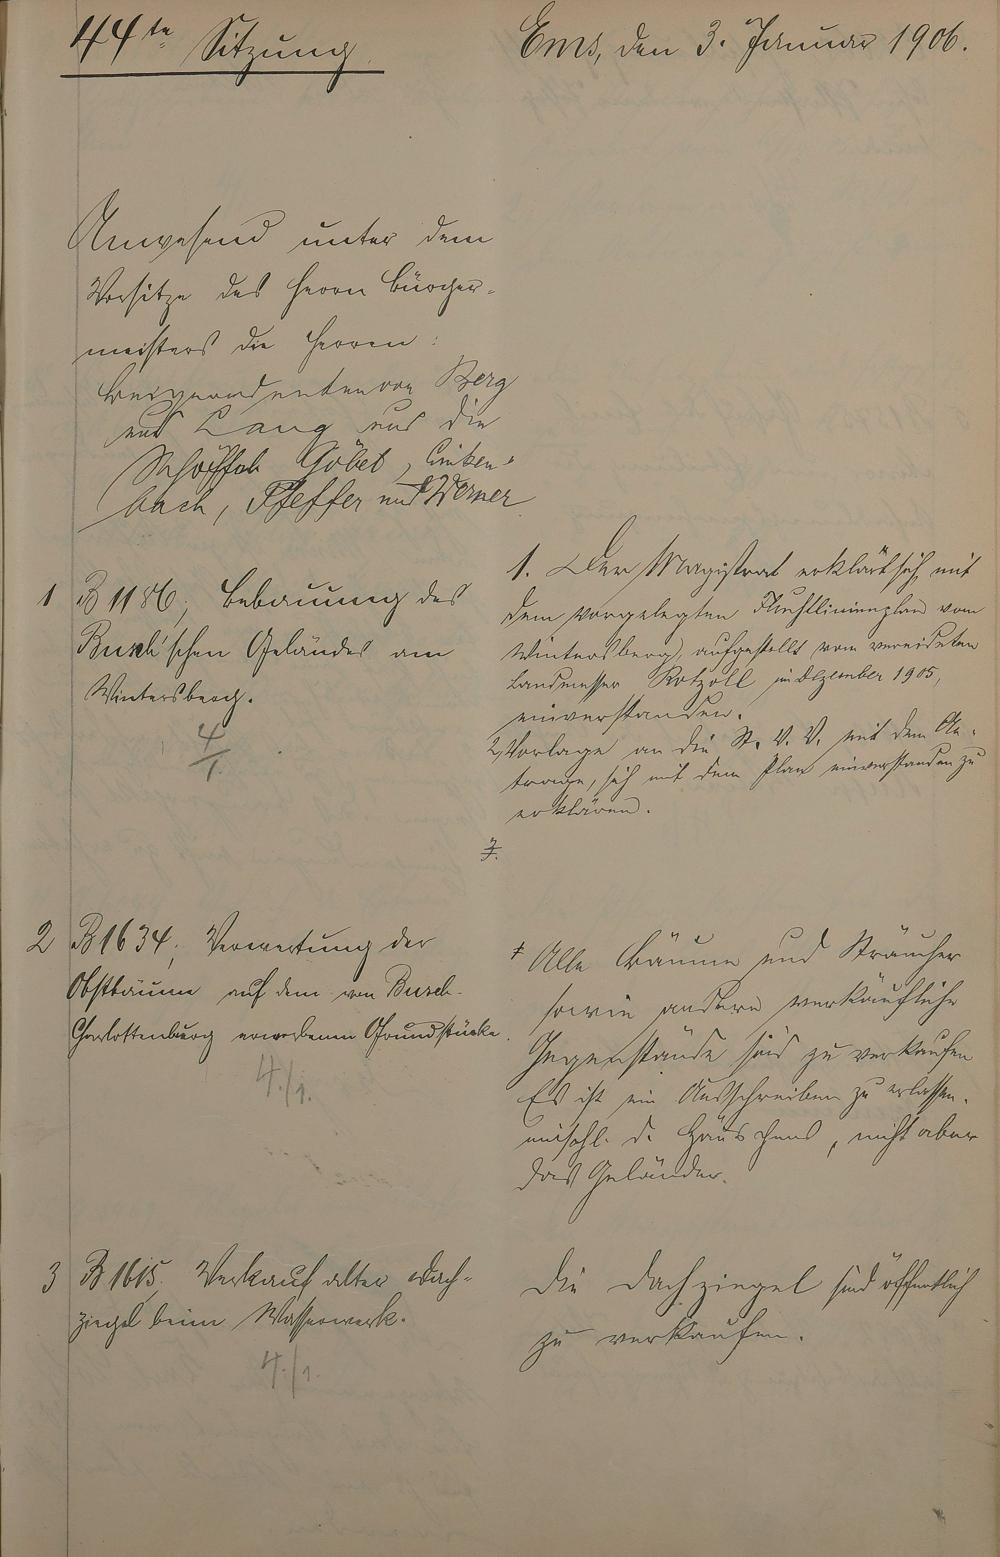 44te Sitzung
Ems, den 3. Januar 1906.
Anwesend unter dem
Vorsitze des Herrn Bürger-
meisters die Herren:
Beigeordneten von Berg
und Lang und die
Schöffen Göbel, Linken-
bach, Pfeffer und Werner
1 B 1186, Bebauung des
Busch'schen Geländes am
Wintersberg.
4/1.
1. Der Magistrat erklärt sich mit
dem vorgelegten Fluchtlinienplan vom
Wintersberg, aufgestellt vom vereideten
Landmesser Rotzoll im Dezember 1905,
einverstanden.
2, Vorlage an die St. V. V. mit dem An-
trage, sich mit dem Plan einverstanden zu
erklären.
2 B 1634, Verwertung der
Obstbäume auf dem von Busch-
Charlottenburg erworbenen Grundstücke.
4./1.
Alle Bäume und Sträucher
sowie andere verkäufliche
Gegenstände sind zu verkaufen
Es ist ein Ausschreiben zu erlassen.
einschl. d. Häuschens, nicht aber
das Geländer.
3 B 1615, Verkauf alter Dach-
ziegel beim Wasserwerk.
4./1.
Die Dachziegel sind öffentlich
zu verkaufen.